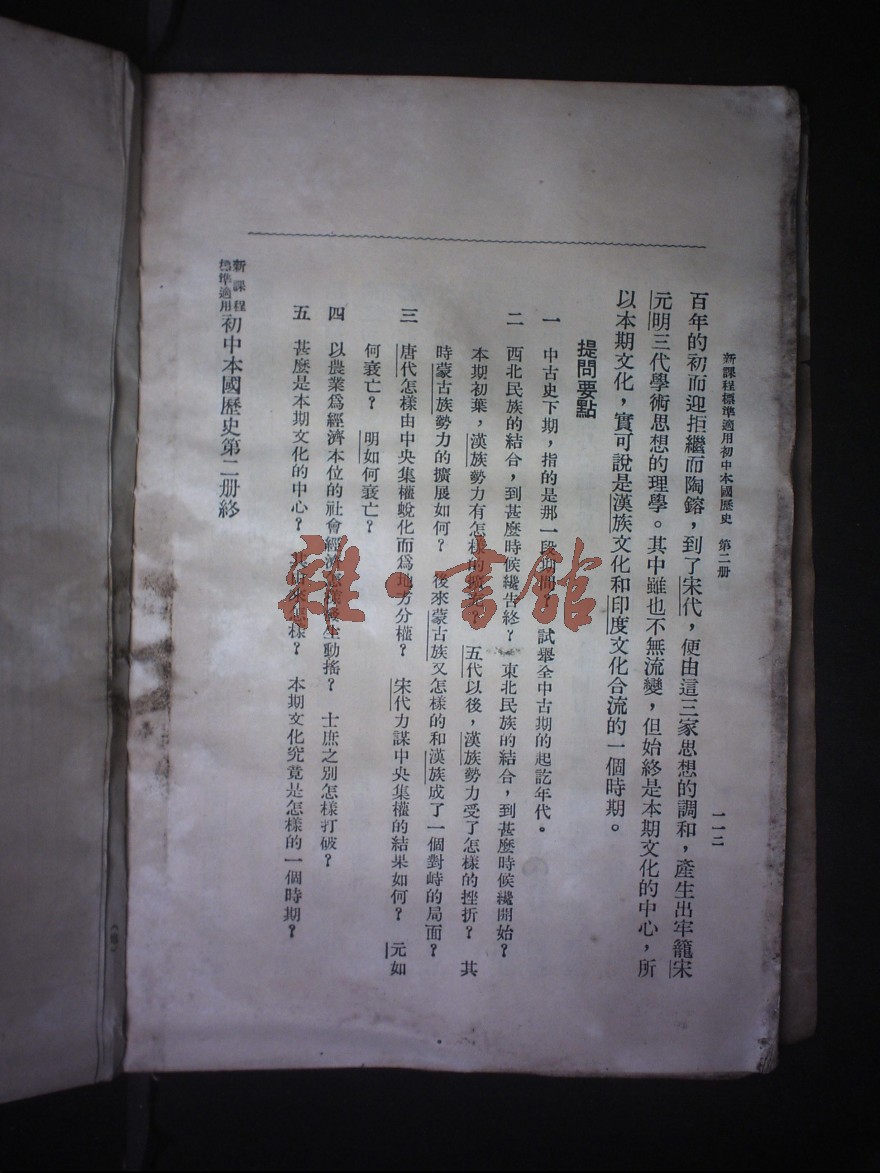 新課程標準適用初中本國歷史　第二册
一一二
百年的初而迎拒繼而陶鎔，到了宋代，便由這三家思想的調和，產生出牢籠宋
元明三代學術思想的理學。其中雖也不無流變，但始終是本期文化的中心，所
以本期文化，實可說是漢族文化和印度文化合流的一個時期。
提問要點
一　中古史下期，指的是那一段時間？　試舉全中古期的起訖年代。
二　西北民族的結合，到甚麼時候纔告終？　東北民族的結合，到甚麼時候纔開始？
本期初葉，漢族勢力有怎樣的　五代以後，漢族勢力受了怎樣的挫折？　其
時蒙古族勢力的擴展如何？　後來蒙古族又怎樣的和漢族成了一個對峙的局面？
三　唐代怎樣由中央集權蛻化而爲地方分權？　宋代力謀中央集權的結果如何？　元如
何衰亡？　明如何衰亡？
四　以農業爲經濟本位的社會經濟　生動搖？　士庶之別怎樣打破？
五　甚麼是本期文化的中心？　其由來怎樣？　本期文化究竟是怎樣的一個時期？
新課程標準適用初中本國歷史第二册終
雜·書館